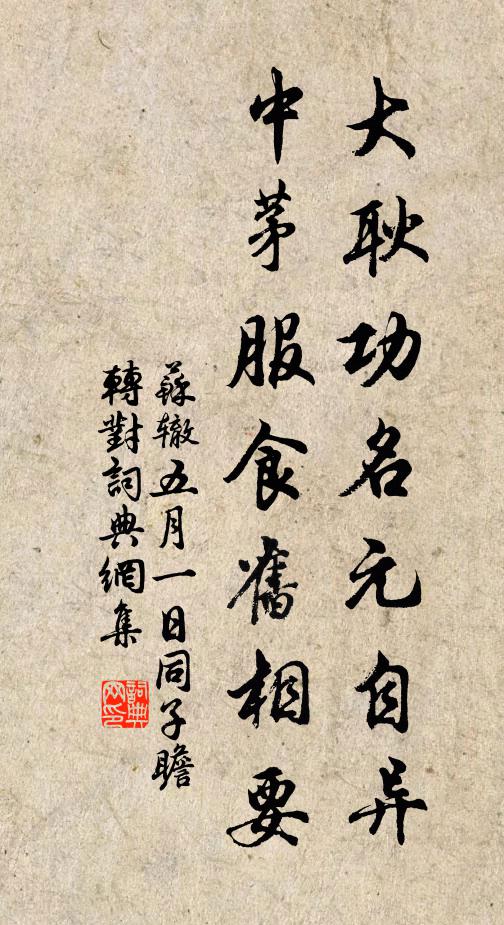 大耿功名元自异
中茅服食舊相要
蘇辙五月一日同子瞻
轉對詞典網集
詞典网印